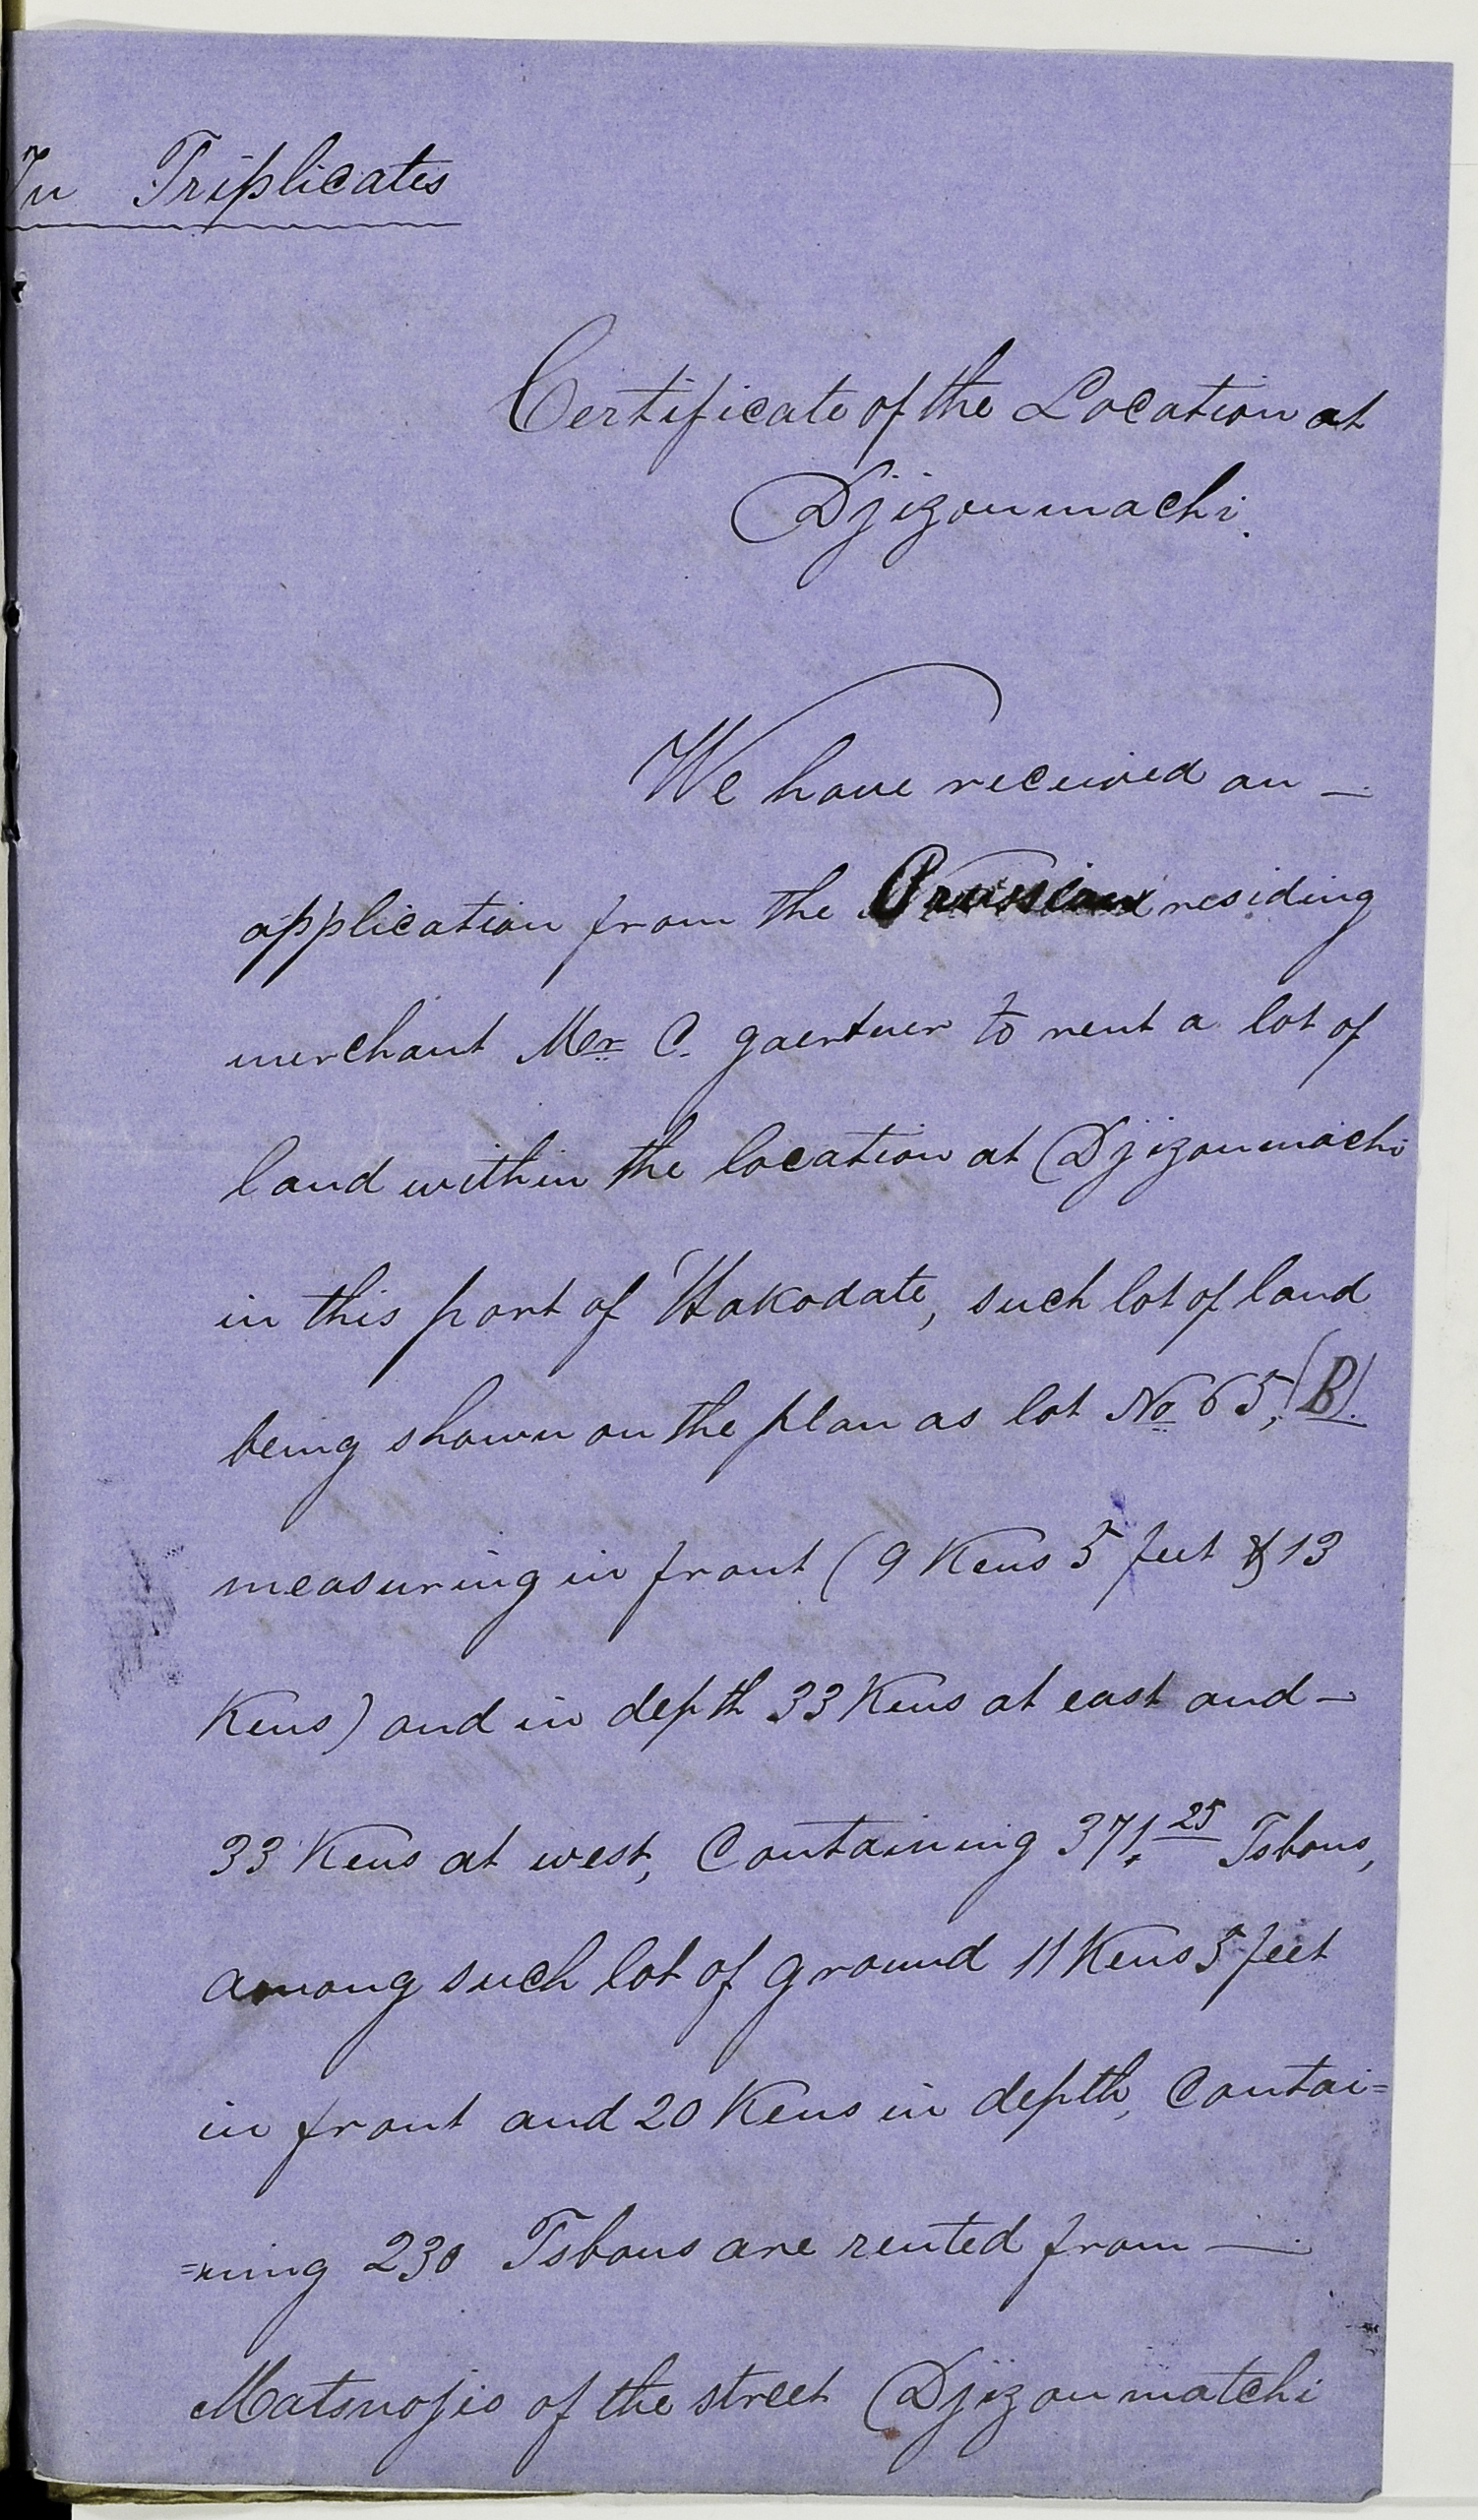 In Triplicates
Certificate of the Location at
Djizoumachi.
We have received an —
application from the Prussian residing
merchant Mer C. gaertner to rent a lot of
land within the location at Djizoumachi
in this port of Hakodate, such lot of land
being shown on the plan as lot No 65, (B).
measuring in front (9 Kens 5 feet & 13
Kens) and in depth 33 Kens at east and —
33 Kens at west, Containing 371.25 Tsbous,
among such lot of ground 11 Kens 5 feet
in front and 20 Kens in depth, Contai=
=ning 230 Tsbous are rented from —
Matsnojio of the street Djizoumatchi